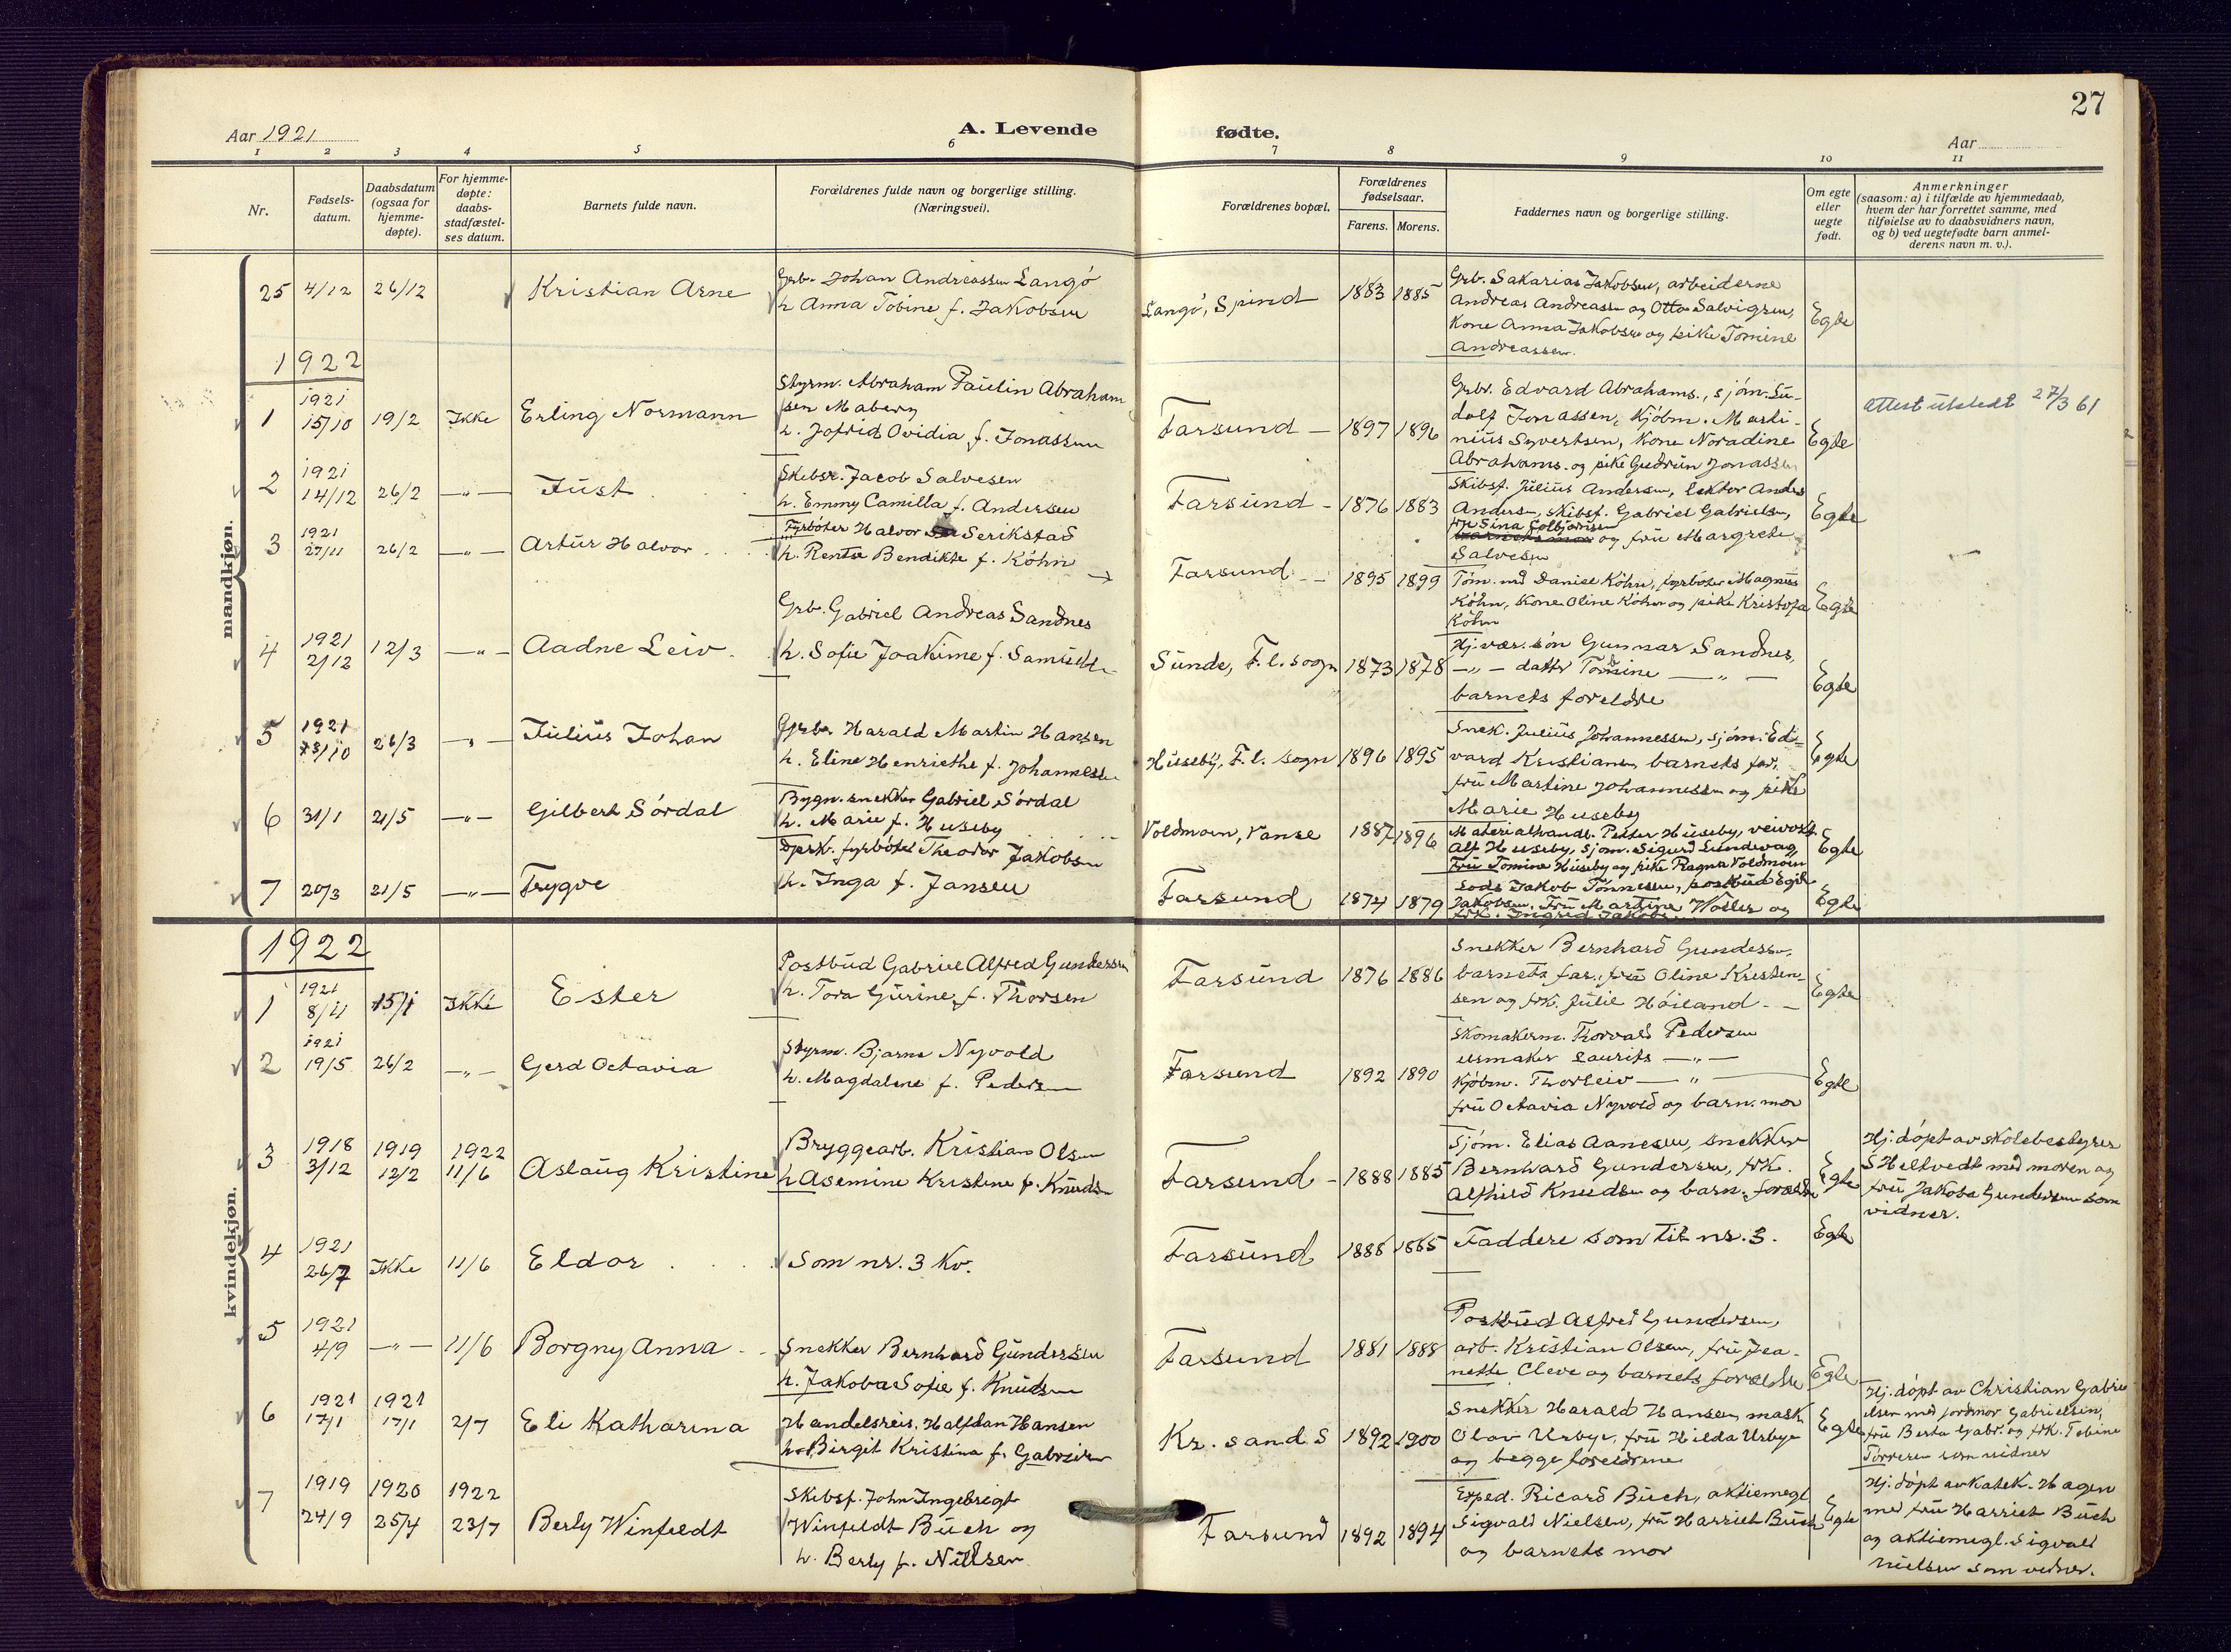 27
Aar 1921
A. Levende
fødte.
Aar
1 2 3 4 5 6 7 8 9 10 11
Nr.
Fødsels-
datum.
Daabsdatum
(ogsaa for
hjemme-
døpte).
For hjemme-
døpte:
daabs-
stadfæstel-
ses datum.
Barnets fulde navn.
Forældrenes fulde navn og borgerlige stilling.
(Næringsvei).
Forældrenes bopæl.
Forældrenes
fødselsaar.
Farens. Morens.
Faddernes navn og borgerlige stilling.
Om egte
eller
uegte
født.
Anmerkninger
(saasom: a) i tilfælde av hjemmedaab,
hvem der har forrettet samme, med
tilføielse av to daabsvidners navn,
og b) ved uegtefødte barn anmel-
derens navn m. v.).
mandkjøn.
25 4/12 26/12 Kristian Arne
Grb. Johan Andreassen Langö
h. Anna Tobine f. Jakobsen
Langö, Spind 1883 1885
Grb. Sakarias Jakobsen, arbeiderne
Andreas Andreassen og Otto Salvigsen,
Kone Anna Jakobsen og pike Tomine
Andreassen.
Egte
1922
1 1921 15/10 19/2 Ikke Erling Normann
Styrm. Abraham Paulin Abraham
sen Maberg
h. Jofrid Ovidia f. Jonassen
Farsund 1897 1896
Grbr. Edvard Abrahams., sjöm. Lu-
dolf Jonassen, Kjöbm. Marti-
nius Syvertsen, Kone Noradine
Abrahams. og pike Gudrun Jonassen
Egte
Attest utstedt 27/3 61
2 1921 14/12 26/2 —„— Just
Skibsr. Jacob Salvesen
h. Emmy Camilla f. Andersen
Farsund 1876 1883
Skibsf. Julius Andersen, lektor Anders
Andersen, skibsf. Gabriel Gabrielsen,
frk Sina Folbjörnsen
og fru Margrete
Salvesen
Egte
3 1921 27/11 26/2 —„— Artur Halvor
Fyrböter Halvor Serikstad
h. Renta Bendikte f. Köhn
Farsund 1895 1899
Töm. md Daniel Köhn, fyrböter Magnus
Köhn, Kone Oline Köhn og pike Kristofa
Köhn
Egte
4 1921 2/12 12/3 —„— Aadne Leiv
Grb. Gabriel Andreas Sandnes
h. Sofie Joakime f. Samuelsen
Sunde, F. l. sogn 1873 1878
Hj. vær. sön Gunnar Sandnes,
—„— datter Tomine —„—
barnets foreldre
Egte
5 1921 23/10 26/3 —„— Julius Johan
Grbr. Harald Martin Hansen
h. Eline Henriethe f. Johannessen
Huseby, F. l. sogn 1896 1895
Snek. Julius Johannessen, sjöm. Ed-
vard Kristiansen, barnets far,
fru Martine Johannessen og pike
Marie Huseby
Egte
6 31/1 21/5 —„— Gilbert Sördal
Bygn. snekker Gabriel Sördal
h. Marie f. Huseby
Voldmoen, Vanse 1887 1896
Materialhandl. Petter Huseby, veivokt.
Alf Huseby, sjöm. Sigurd Lundevaag
Fru Tomine Huseby og pike Ragna Voldmoen
Egte
7 20/3 21/5 —„— Trygve
Dpsk. fyrböter Theodor Jakobsen
h. Inga f. Jansen
Farsund 1874 1879
Lods Jakob Tönnesen, postbud Egil
Jakobsen, Fru Martine Woller og
frk. Ingrid Jakobs.
Egte
kvindekjøn.
1922
1 1921 8/11 15/1 Ikke Ester
Postbud Gabriel Alfred Gundersen
h. Tora Gurine f. Thorsen
Farsund 1876 1886
Snekker Bernhard Gundersen,
barnets far, fru Oline Kristen-
sen og frk. Julie Höiland
Egte
2 1921 19/5 26/2 —„— Gerd Octavia
Styrm. Bjarne Nyvold
h. Magdalene f. Pedersen
Farsund 1892 1890
Skomakerm. Thorvald Pedersen
urmaker Laurits —„—
Kjöbm. Thorleiv —„—
fru Octavia Nyvold og barn. mor
Egte
3 1918 3/12 1919 12/2 1922 11/6 Aslaug Kristine
Bryggearb. Kristian Olsen
h. Asemine Kristine f. Knudsen
Farsund 1888 1885
Sjöm. Elias Aanesen, snekker
Bernhard Gundersen, frk.
Alfhild Knudsen og barn. foreldre
Egte
Hj. döpt av skolebestyrer
S Heltvedt med moren og
fru Jakoba Gundersen som
vidner.
4 1921 26/7 Ikke 11/6 Eldor
Som nr. 3 Kv.
Farsund 1888 1885
Faddere som til nr. 3.
Egte
5 1921 4/9 —„— 11/6 Borgny Anna
Snekker Bernhard Gundersen
h. Jakoba Sofie f. Knudsen
Farsund 1881 1888
Postbud Alfred Gundersen,
arb. Kristian Olsen, fru Jea-
nette Cleve og barnets foreldre
Egte
6 1921 17/1 1921 17/1 2/7 Eli Katharina
Handelsreis. Halfdan Hansen
h. Birgit Kristina f. Gabrielsen
Kr. sand S 1892 1900
Snekker Harald Hansen, mask.
Olav Urbye, fru Hilda Urbye
og begge foreldrene
Egte
Hj. döpt av Christian Gabri-
elsen med jordmor Gabrielsen,
fru Berta Gabr. og frk. Tobine
Torresen som vidner
7 1919 24/9 1920 25/4 1922 23/7 Berly Winfeldt
Skibsf. John Ingebrigt
Winfeldt Buch og
h. Berly f. Nielsen
Farsund 1892 1894
Exped. Ricard Buch, aktiemegl.
Sigvald Nielsen, fru Harriet Buch
og barnets mor
Egte
Hj. döpt av Katek. Hagen
med fru Harriet Buch
og aktiemegl. Sigvald
Nielsen som vidner.